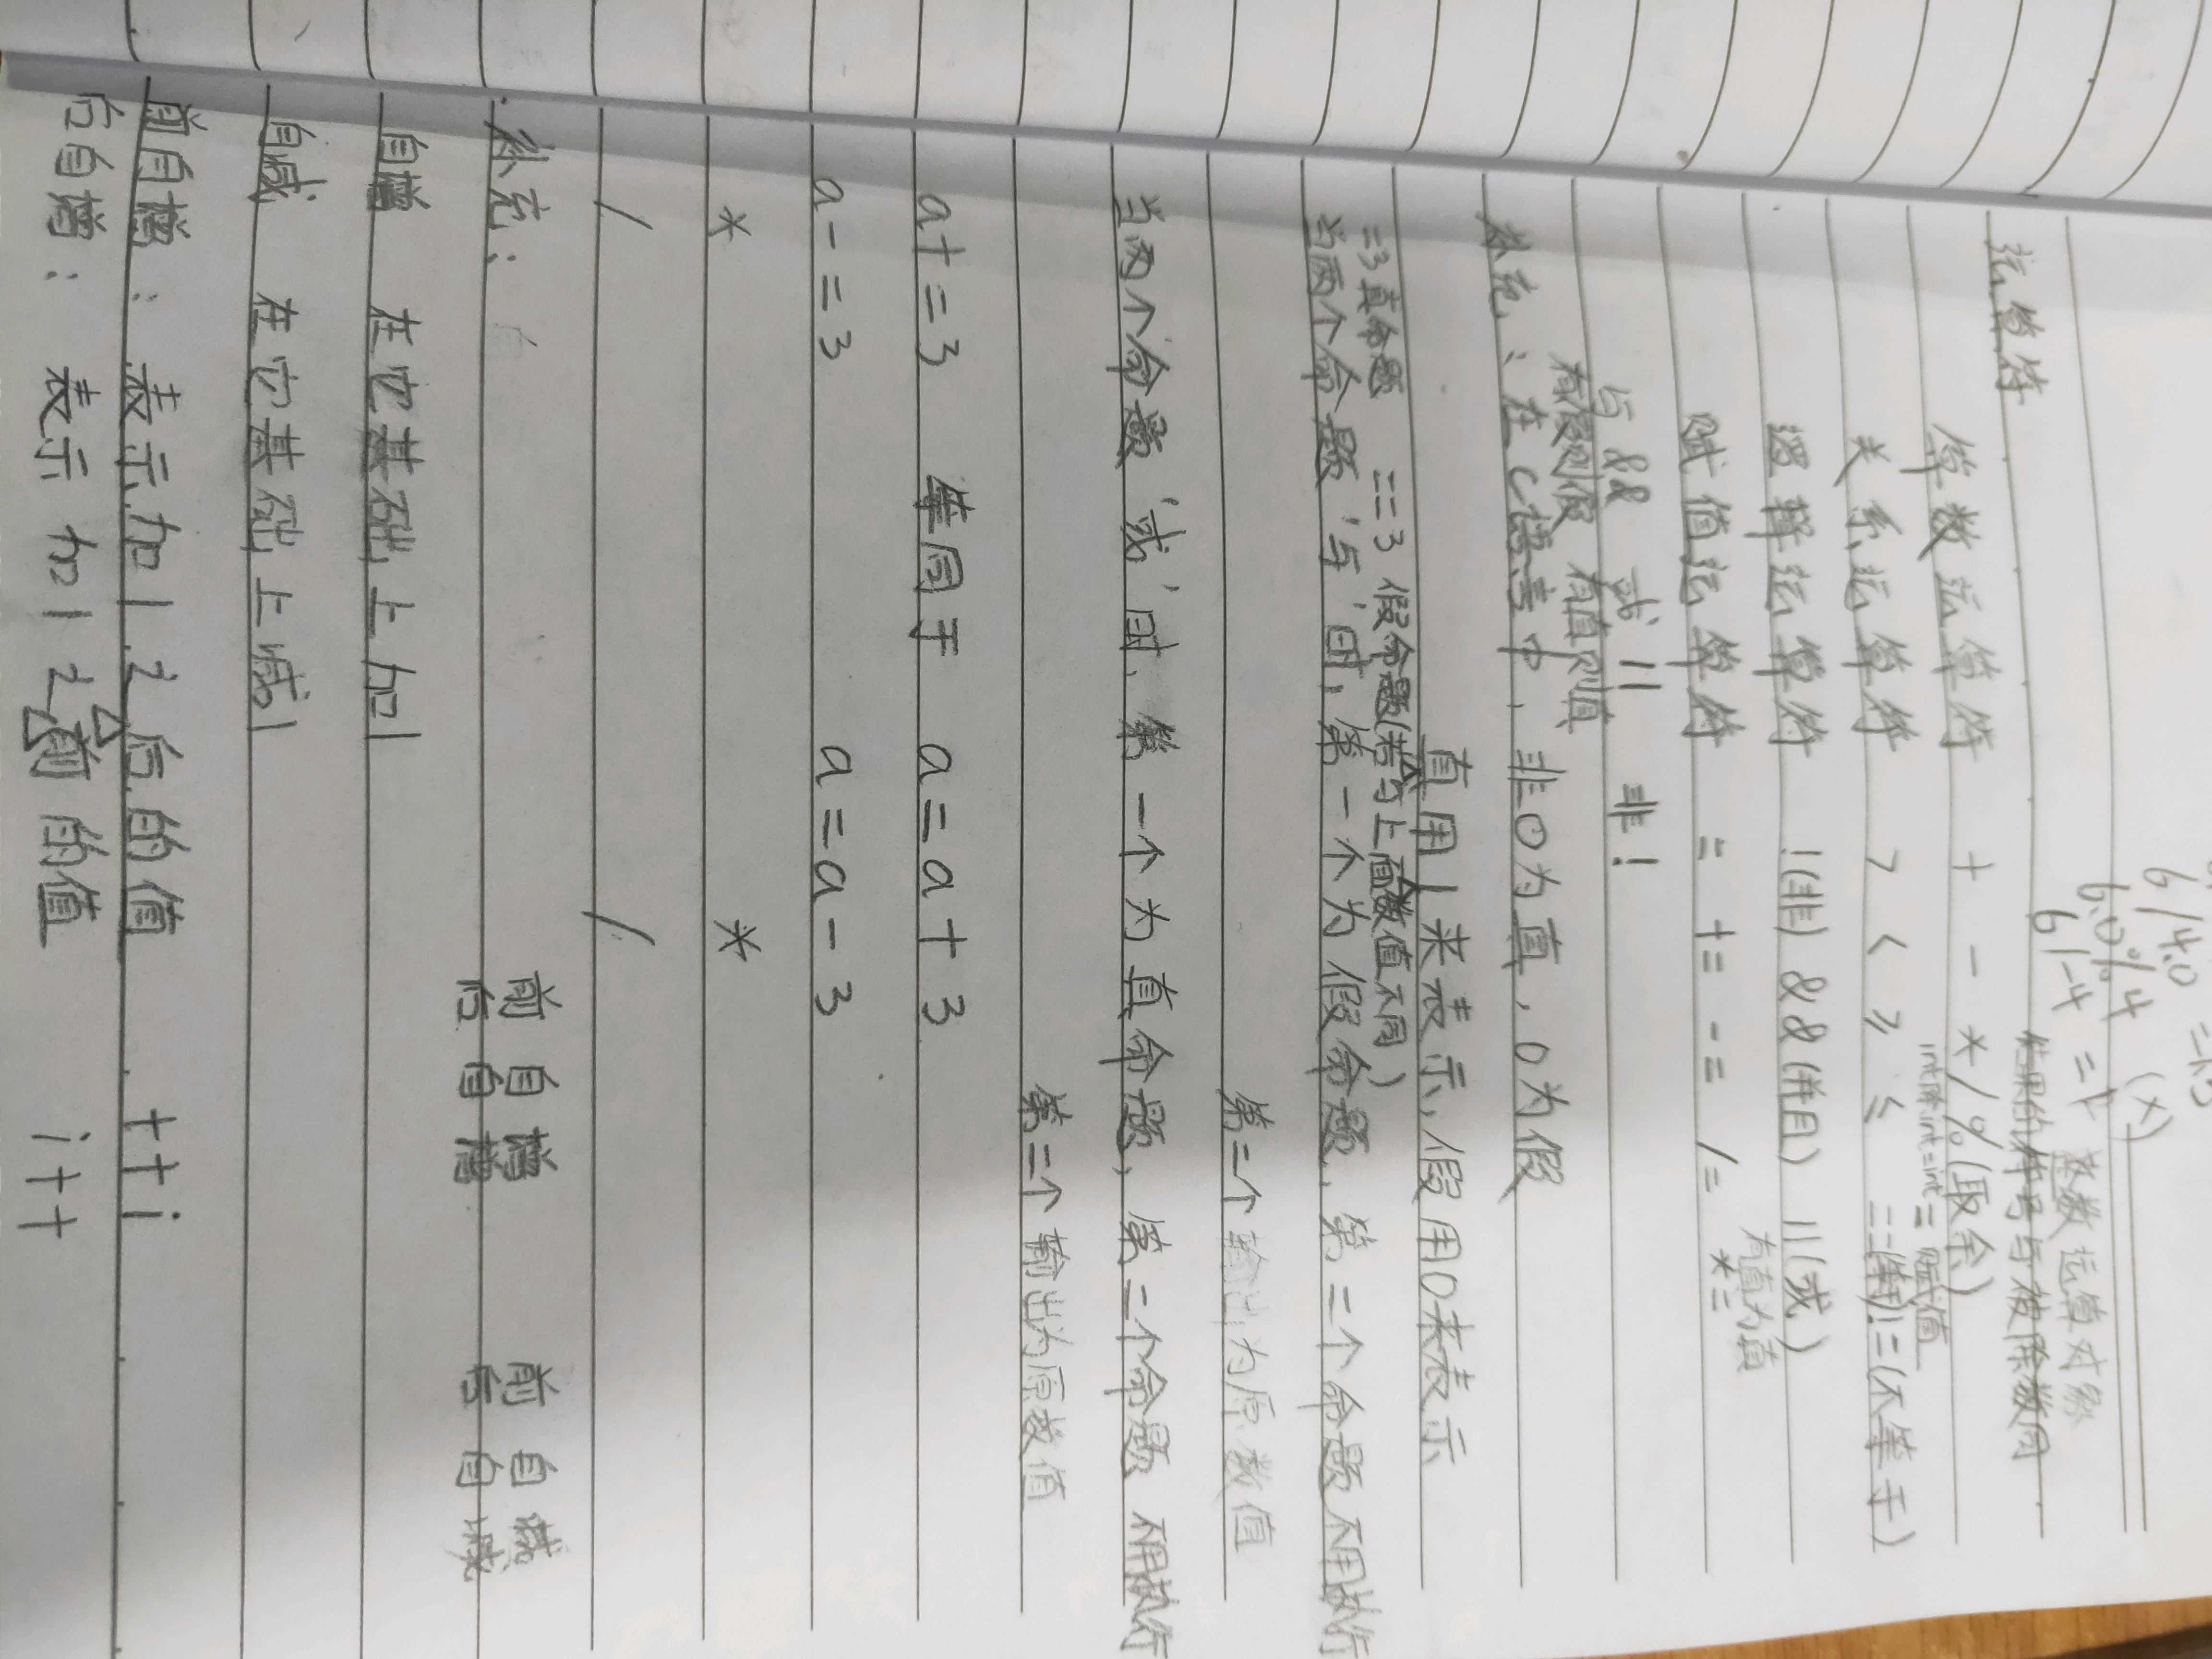 6/4.0 =1.5
6.0%4 (×)
6/-4 = -1 整数运算对象
结果的符号与被除数同
运算符
算数运算符 + - * / %(取余)
int除int=int = 赋值
关系运算符 > < ≥ ≤ ==(等于) !=(不等于)
逻辑运算符 !(非) &&(并且) ||(或)
有真为值
赋值运算符 = += -= /= *=
与 && 或 || 非 !
有假则假 有真则真
补充: 在C语言中, 非0为真, 0为假
真用1来表示, 假用0来表示
=3真命题 ==3 假命题(若与上面数值不同)
当两个命题'与'时, 第一个为假命题, 第二个命题不用执行
第二个输出为原数值
当两个命题'或'时, 第一个为真命题, 第二个命题不用执行
第二个输出为原数值
a+=3 等同于 a=a+3
a-=3 a=a-3
* *
/ /
补充: 前自增 前自减
后自增 后自减
自增 在它基础上加1
自减 在它基础上减1
前自增: 表示加1之后的值 ++i
后自增: 表示加1之前的值 i++